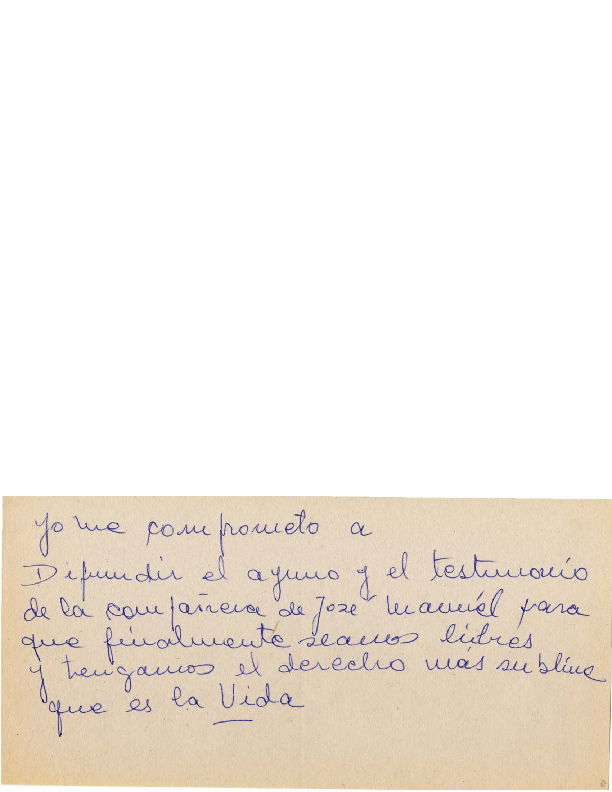 Yo me comprometo a
Difundir el ayuno y el testimonio
de la compañera de José Manuel para
que finalmente seamos libres
y tengamos el derecho más sublime
que es la Vida